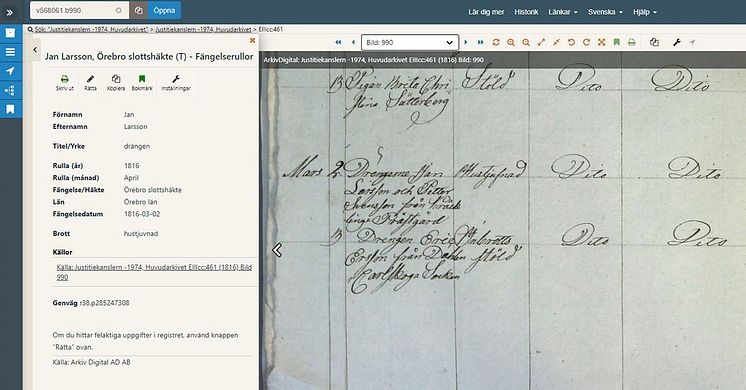 v568061.b990
Öppna
Lär dig mer
Historik
Länkar
Svenska
Hjälp
Sök: "Justitiekanslern -1974, Huvudarkivet" > Justitiekanslern -1974, Huvudarkivet > EIIIcc:461
Bild: 990
Jan Larsson, Örebro slottshäkte (T) - Fängelserullor
ArkivDigital: Justitiekanslern -1974, Huvudarkivet EIIIcc:461 (1816) Bild: 990
Skriv ut Rätta Kopiera Bokmärk Inställningar
Förnamn Jan
Efternamn Larsson
Titel/Yrke drängen
Rulla (år) 1816
Rulla (månad) April
Fängelse/Häkte Örebro slottshäkte
Län Örebro län
Fängelsedatum 1816-03-02
Brott hustjuvnad
Källor
Källa: Justitiekanslern -1974, Huvudarkivet EIIIcc:461 (1816) Bild
990
Genväg r38.p285247308
Om du hittar felaktiga uppgifter i registret. använd knappen
"Rätta" ovan.
Källa: Arkiv Digital AD AB
13 Pigan Brita Chri Stöld Dito Dito
stina Sätterberg
Mars 2 Drängarne Jan Hustjufnad Dito Dito
Larsson och Petter
Svensson från
linge Prästgård
13 Drengen Eric Inbrotts Dito Dito
Ersson från stöld
Carlskoga Socken